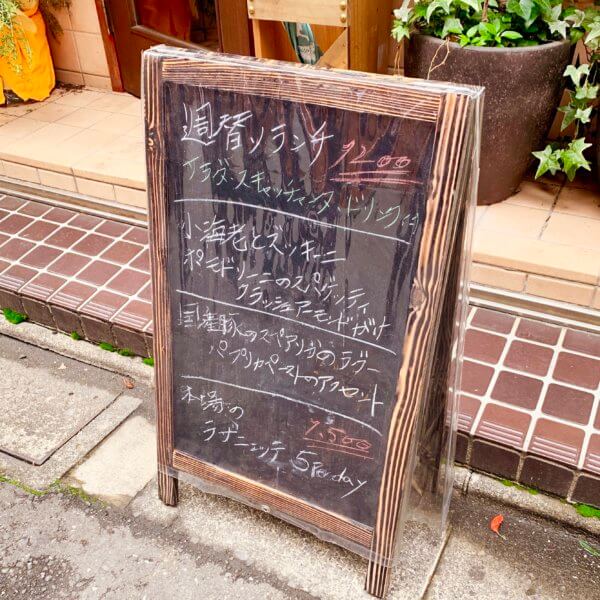 週替りランチ 1200
サラダ、スキャッチャータ、ドリンク付
小海老とズッキーニ
ポモドリーニのスパゲッティ
クラッシュアーモンドがけ
国産豚のスペアリブのラグー
パプリカペーストのアクセント
本場の 1,500
ラザニェッテ 5Per day